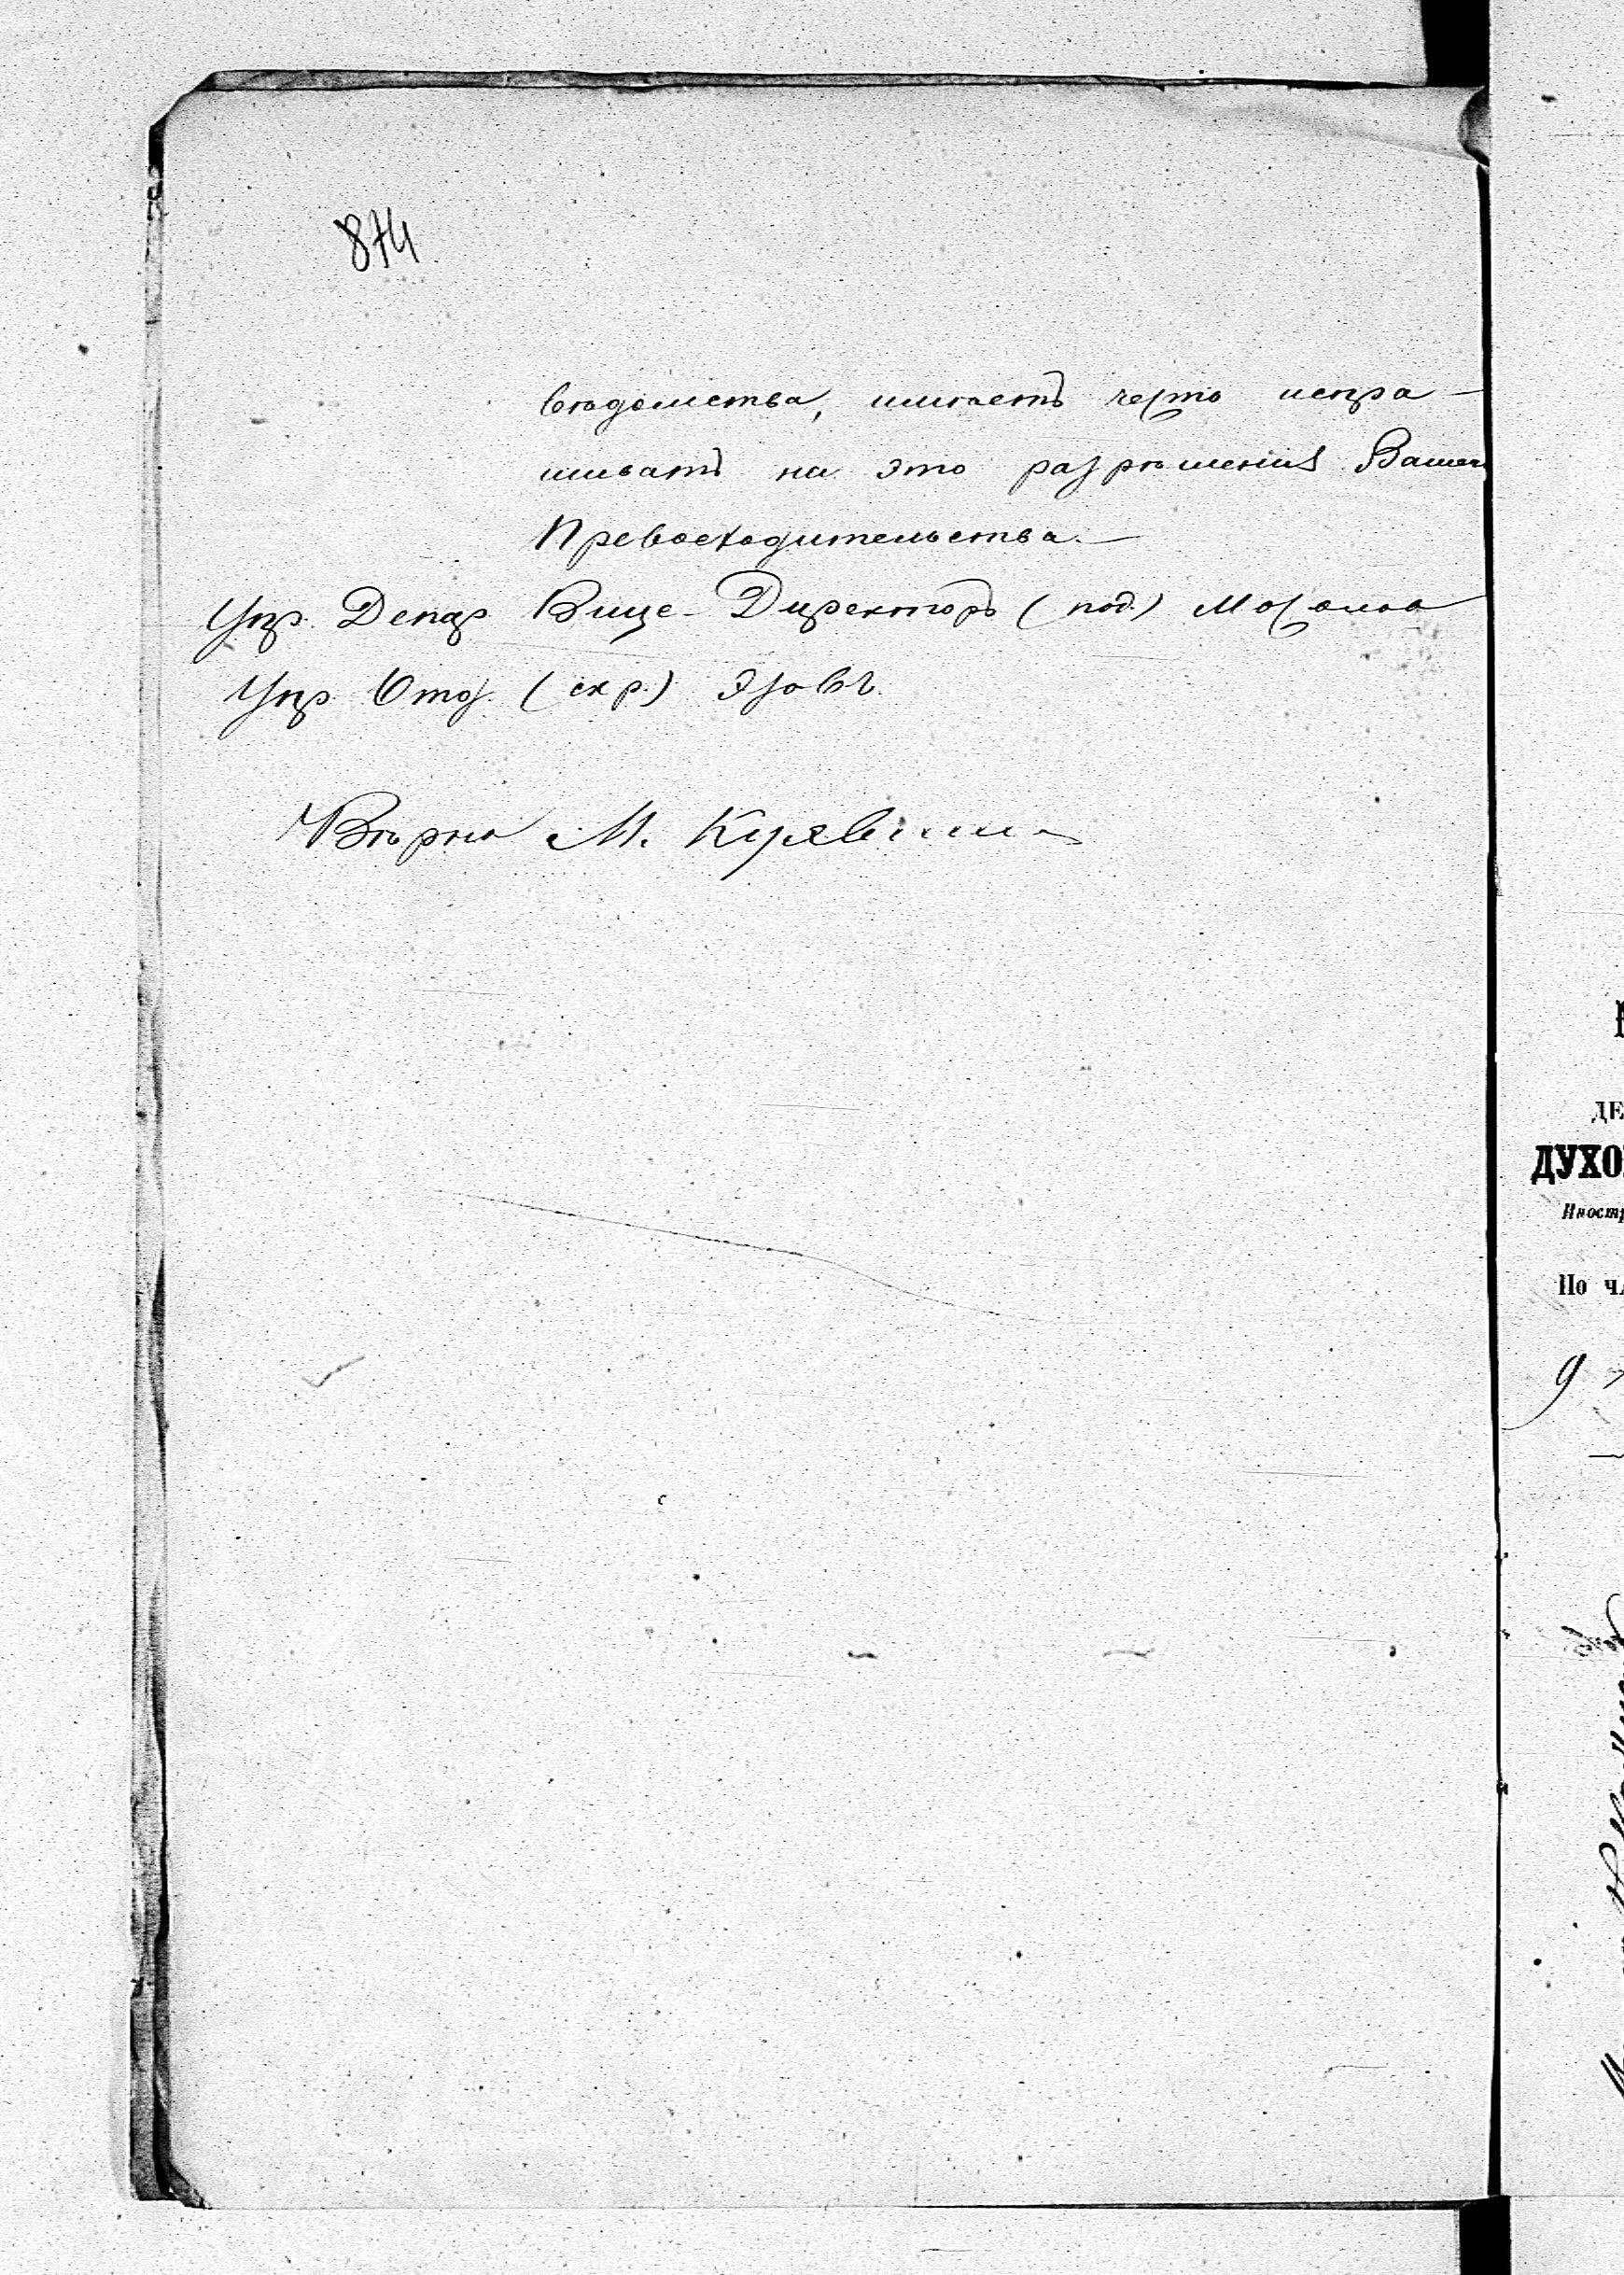 874
вѣдомства, имѣетъ честь испра-
шивать на это разрѣшенія Вашего
Превосходительства.—
Упр. Депар. Вице-Директоръ (под.) Мосолов
Упр. Отд. (скр.) Язовъ.
Вѣрно М.
ДЕ
ДУХО
Иностр
По ч
9